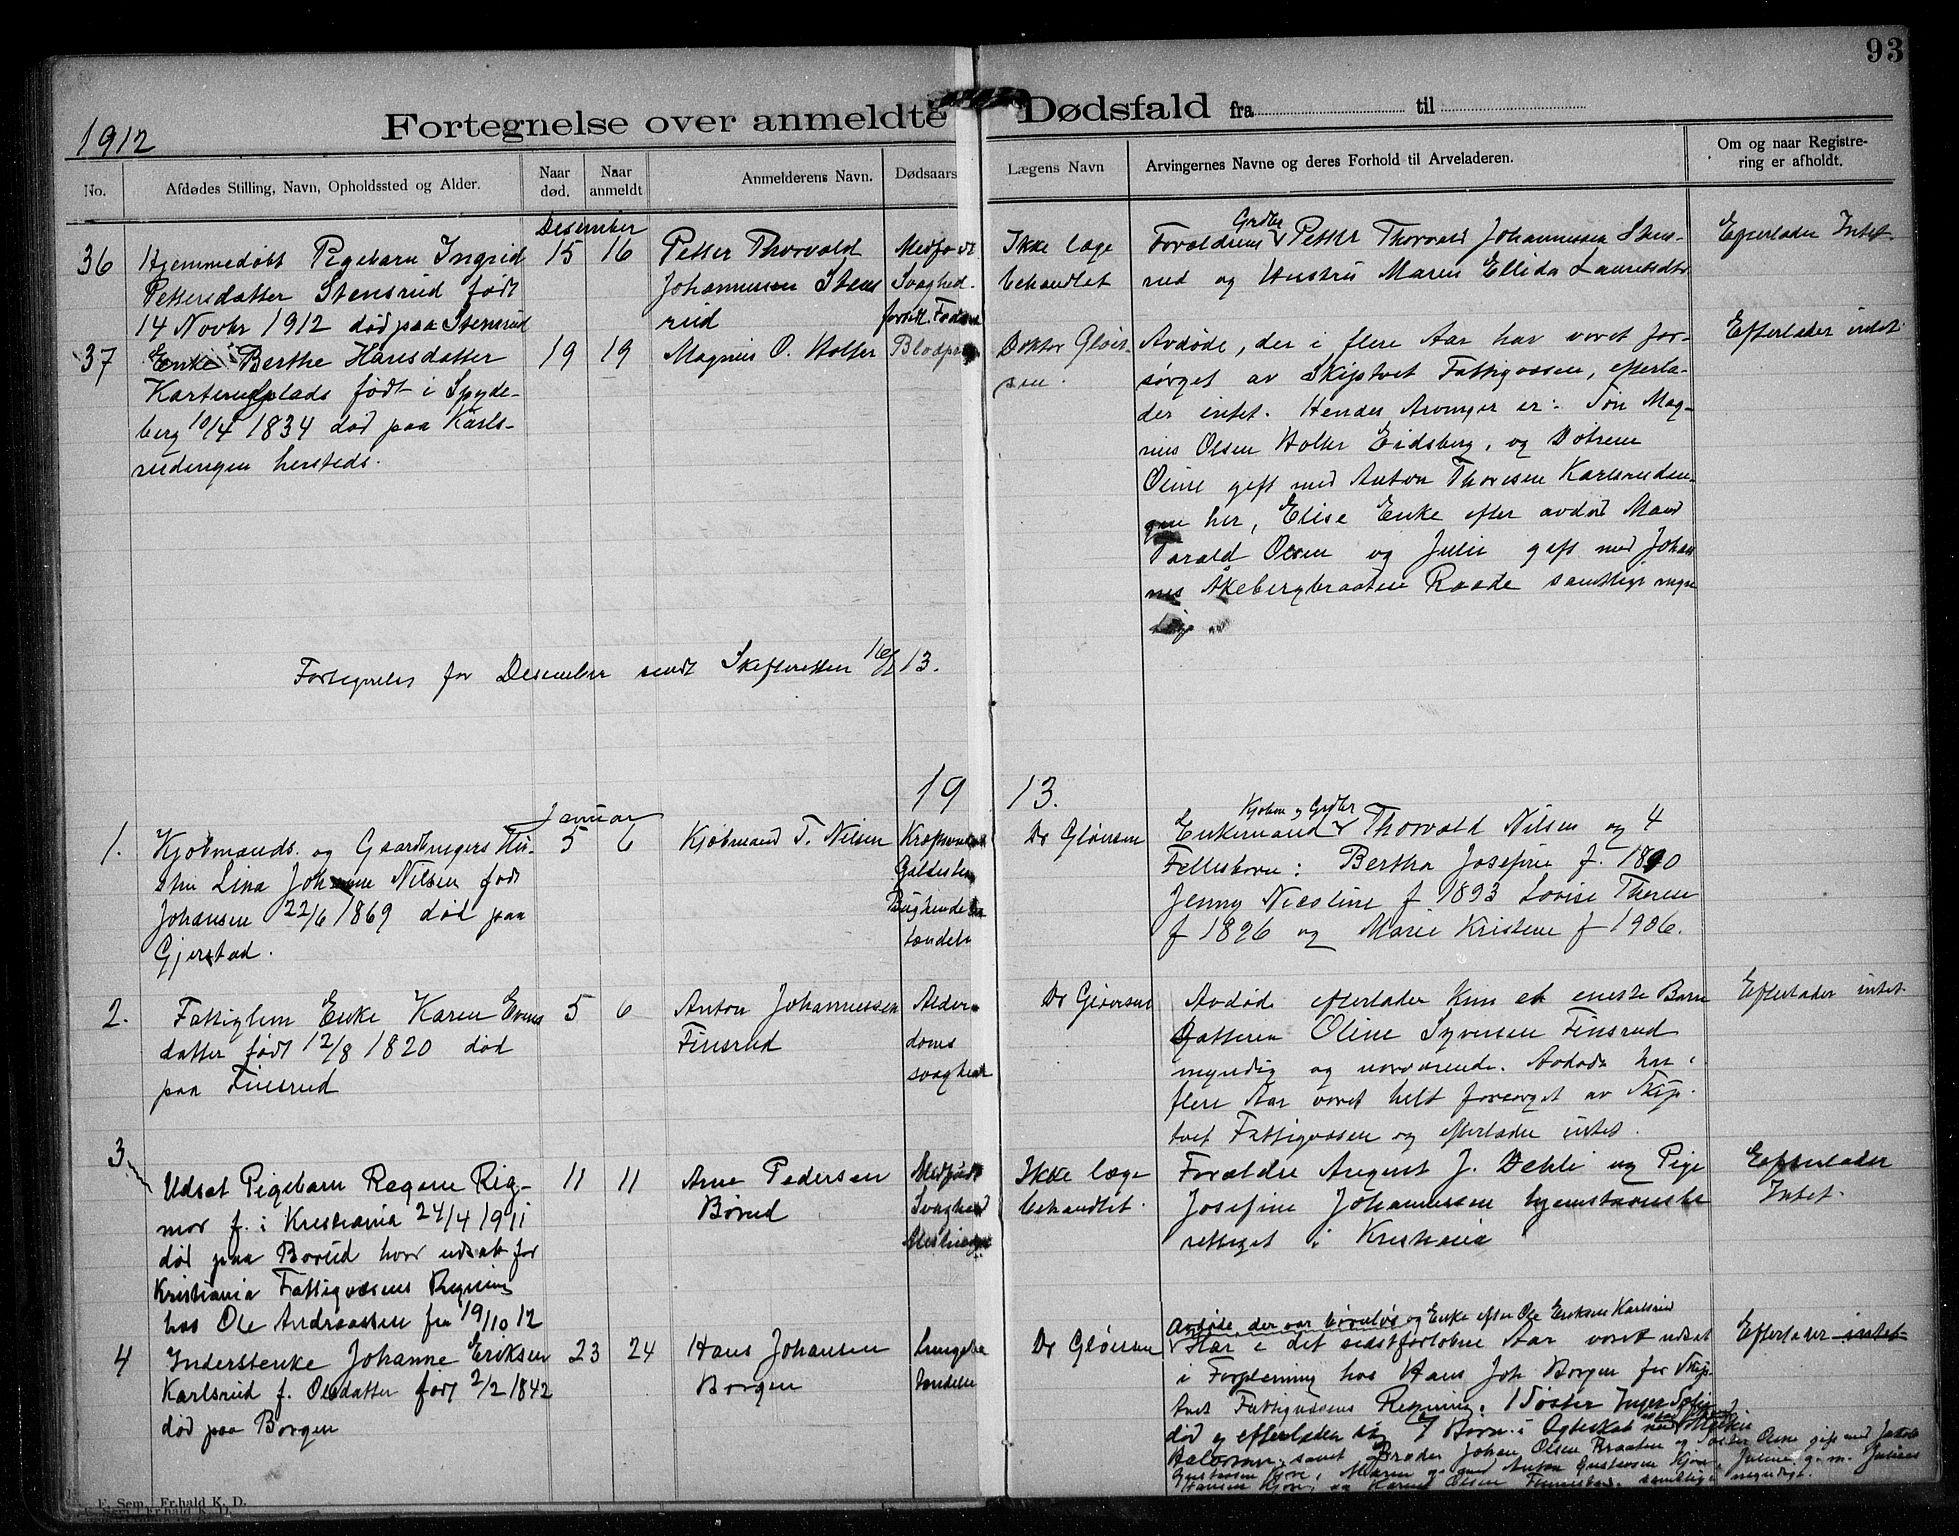 93
1912
Fortegnelse over anmeldte Dødsfald fra til
No.
Afdødes Stilling, Navn, Opholdssted og Alder.
Naar død.
Naar anmeldt
Anmelderens Navn.
Dødsaars
Lægens Navn
Arvingernes Navne og deres Forhold til Arveladeren.
Om og naar Registre-
ring er afholdt.
Desember
36
Hjemmedøbt Pigebarn Ingrid
Pettersdatter Stensrud født
14 Novbr 1912 død paa Stensrud
15
16
Petter Thorvald
Johannessen Stens
rud
Medfødt
Svaghed.
Ikke læge
behandlet
Forældrene Grdbr Petter Thorvald Johannessen Stens-
rud og Hustru Maren Ellida Lauritsdtr
Efterlader Intet
37
Enke Berthe Hansdatter
Karterudplads født i Spyde-
berg 10/4 1834 død paa Karls-
rudengen hersteds.
19
19
Magnus O. Holter
Doktor Gløer-
sen.
Avdøde, der i flere Aar har været for-
sørget av Skiptvet Fattigvæsen, efterla-
der intet. Hendes Arvinger er: Søn Mag-
nus Olsen Holter Eidsberg, og Døtrene
Oline gift med Anton Thoresen Karlsruden-
gen her, Elise Enke efter avdød Mand
Tarald Olsen og Julie gift med Johan
nes Åkebergbraaten Raade samtlige myn
dige
Efterlader intet
Fortegnelse for Desember sendt Skifteretten 16/1 13.
1913.
Januar
1.
Kjøbmands og Gaardbrugers Hu-
stru Lina Johanne Nilsen født
Johansen 22/6 1869 død paa
Gjerstad.
5
6
Kjøbmand T. Nilsen
Galdesten
Dr Gløersen
Kjøbm og Grdbr
Enkemand Thorvald Nilsen og 4
Fellesbørn: Bertha Josefine f. 1890
Jenny Nicoline f 1893 Lovise Therese
f 1896 og Marie Kristine f 1906.
2.
Fattiglem Enke Karen Evens
datter født 12/8 1820 død
paa Finsrud
5
6
Anton Johannessen
Finsrud
Alder
doms
svaghed
Dr Gløersen
Avdøde efterlader kun et eneste Barn
Datteren Oline Syversen Finsrud
myndig og nærværende. Avdøde har i
flere Aar været helt forsørget av Skip-
tvet Fattigvæsen og efterlader intet.
Efterlader intet
3
Udsat Pigebarn Ragna Rig-
mor f. i Kristiania 24/4 1911
død paa Børud hvor udsat for
Kristiania Fattigvæsens Regning
hos Ole Andreassen fra 19/10 12
11
11
Arne Pedersen
Børud
Medfødt
Svaghed
Ikke læge
behandlet.
Forældre August J. Dehli og Pige
Josefine Johannessen hjemstavnsbe
rettiget i Kristiania
Efterlader
Intet.
4
Inderstenke Johanne Eriksen
Karlsrud f. Olsdatter født 2/2 1842
død paa Borgen
23
24
Hans Johansen
Borgen
Lungebe
tændelse
Dr Gløersen
Avdøde, der var barnløs og Enke efter Ole Eriksen Karlsrud
Har i det sidstforløbne Aar været udsat
i Forpleining hos Hans Joh Borgen for Skip-
tvet Fattigvæsens Regning. 1 Søster Inger
død og efterlader sig 7 Børn i Ægteskab med
Halvorsen, samt Broder Johan Olsen Braaten og Søster Oline gift med Jakob
Gustavsen Kjøve, Maren g. med Anton Gustavsen Kjøve, Juline g. m. Julius
Hansen Kjøve, og Karen Olsen samtlige myndige.
Efterlader intet
E. Sem, Fr.hald K. D.